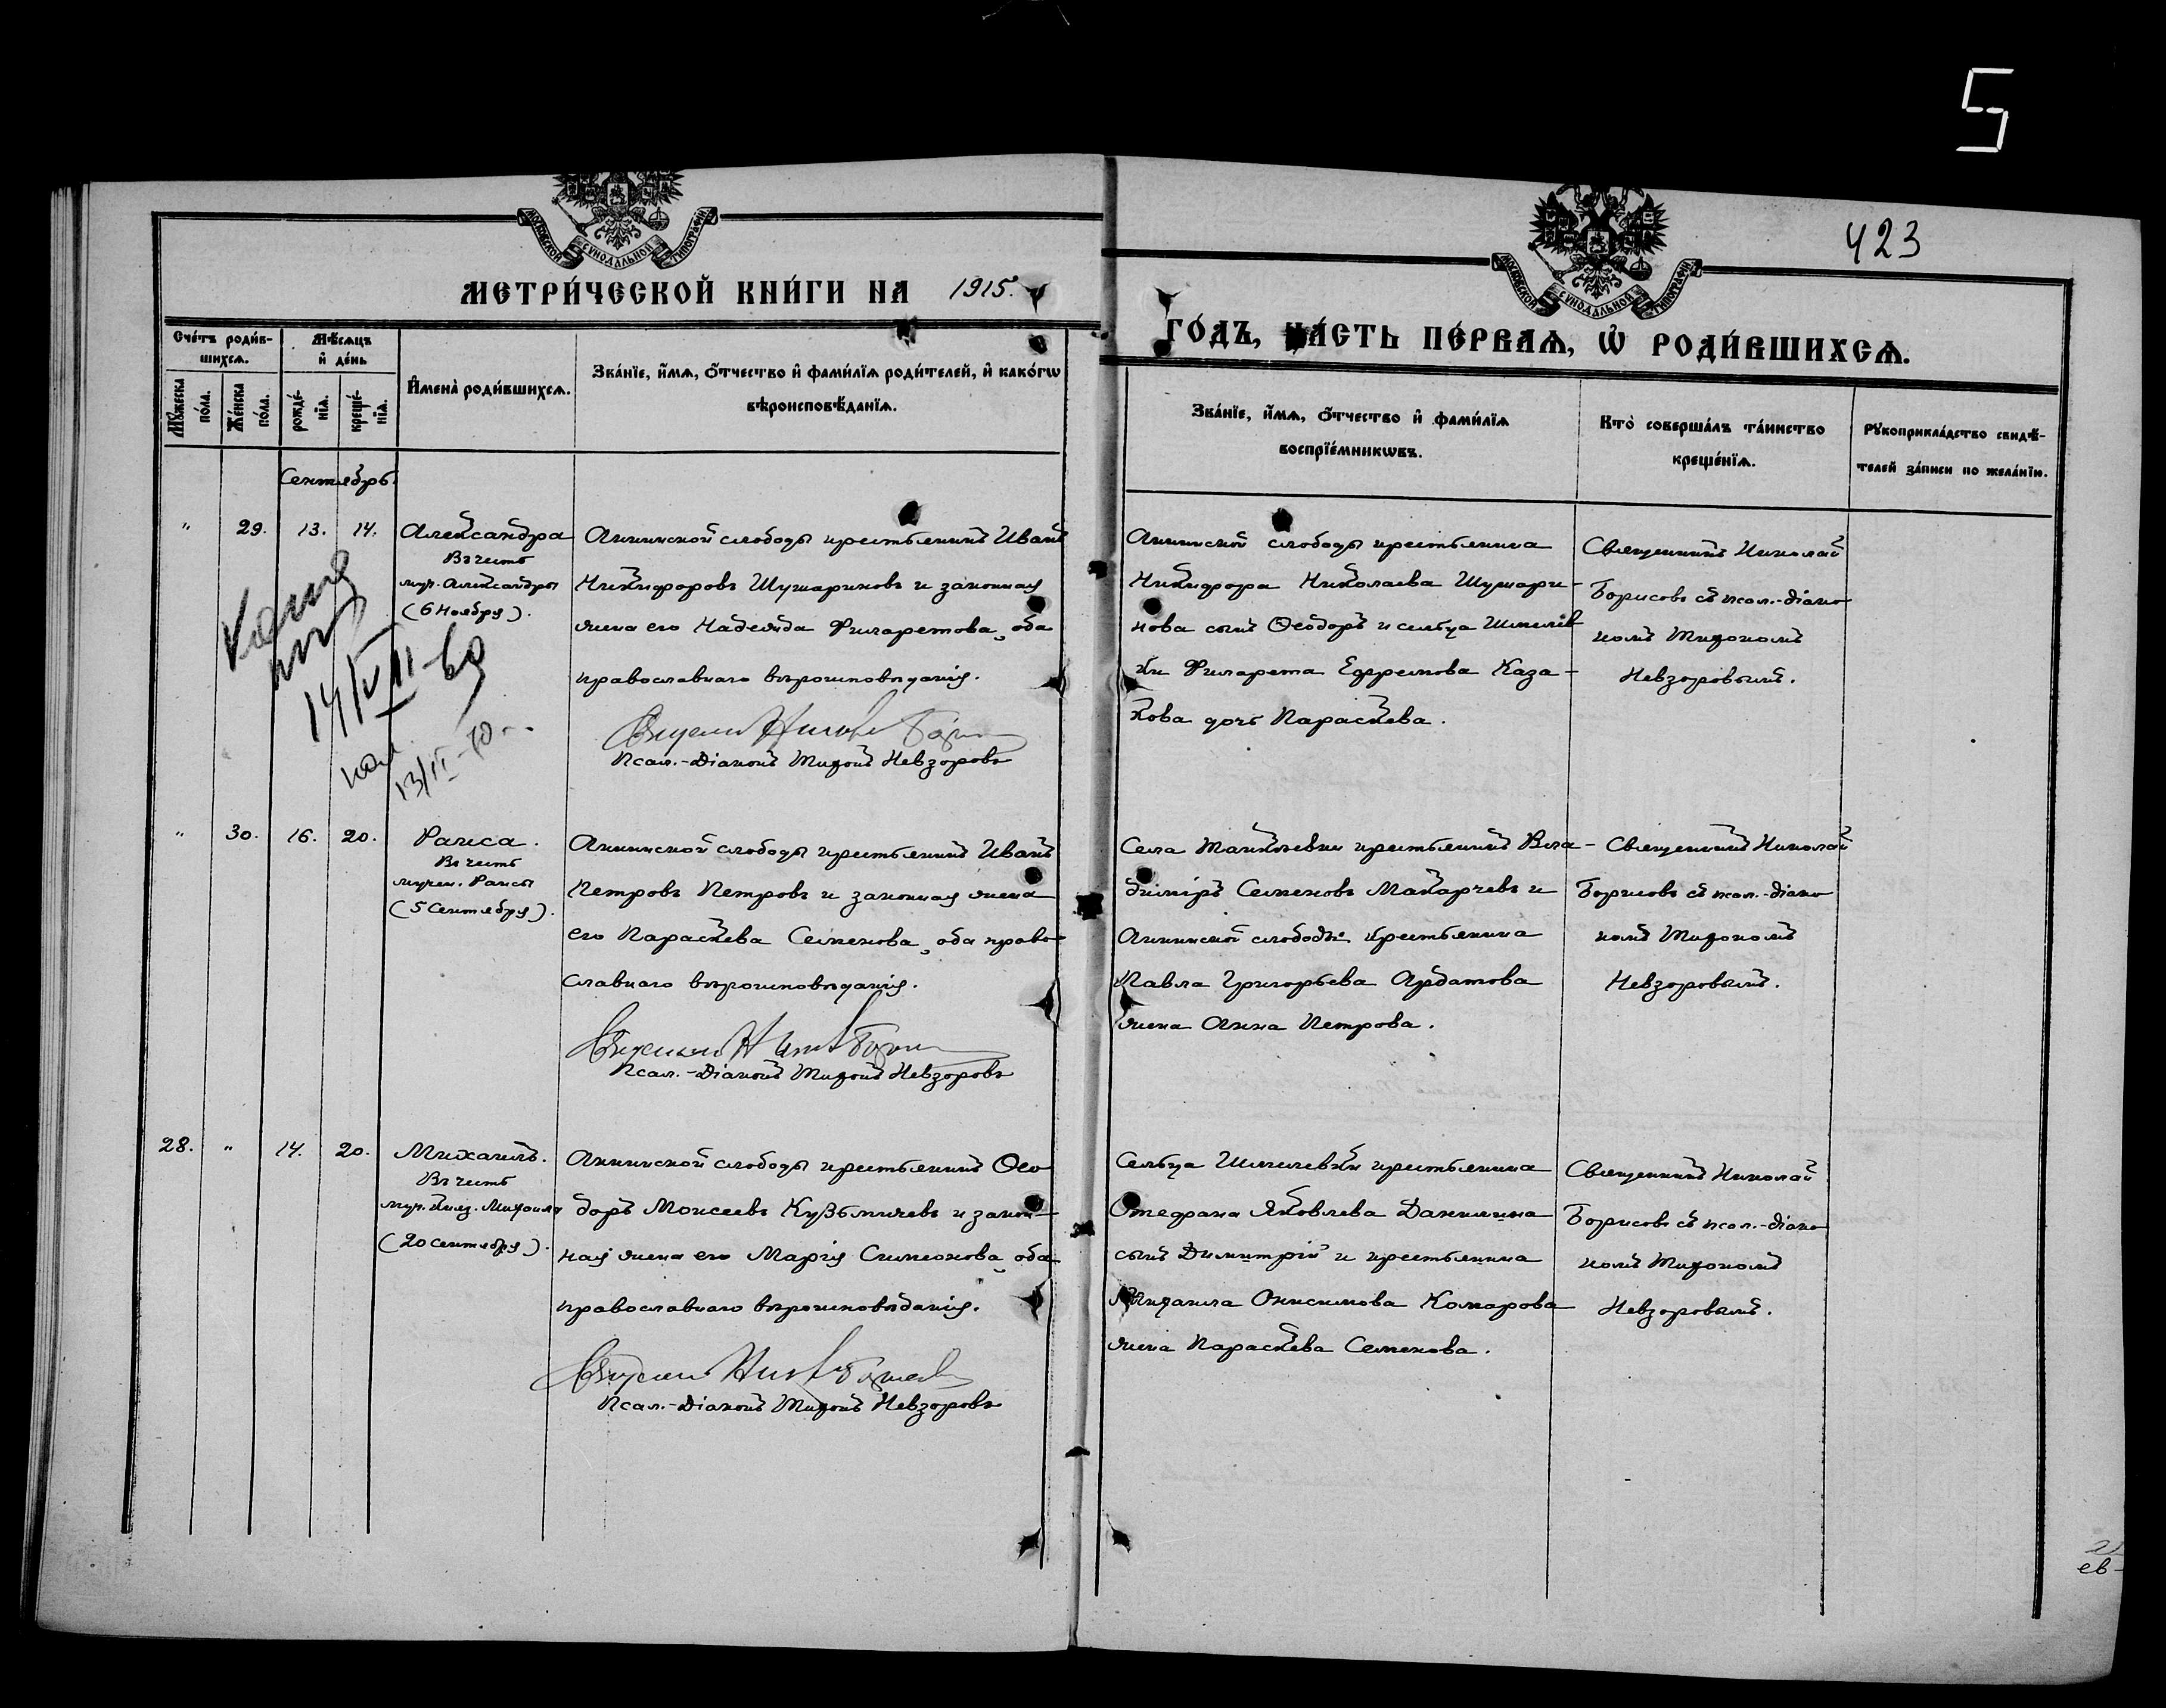 5
423
МОСКОВСКОЙ СУНОДАЛЬНОЙ ТИПОГРАФІИ
МОСКОВСКОЙ СУНОДАЛЬНОЙ ТИПОГРАФІИ
МЕТРИ́ЧЕСКОЙ КНИ́ГИ НА 1915.
ГО́ДЪ, ЧА́СТЬ ПЕ́РВАѦ, Ѡ РОДИ́ВШИХСѦ.
Сче́тъ роди́в-
шихсѧ.
Мѣ́сѧцъ
и де́нь
Мꙋ́жеска
по́ла.
Же́нска
по́ла.
рожде́-
нїѧ.
креще́-
нїѧ.
Имена̀ роди́вшихсѧ.
Зва́нїе, и́мѧ, ѻ́тчество и фами́лїѧ роди́телей, и како́гѡ
вѣроисповѣ́данїѧ.
Зва́нїе, и́мѧ, ѻ́тчество и фами́лїѧ
воспрїе́мникѡвъ.
Кто̀ соверша́лъ та́инство
креще́нїѧ.
Рꙋкоприкла́дство свидѣ́-
телей за́писи по жела́нїю.
Сентябрь.
" 29. 13. 14.
Александра
Въ честь
муч. Александры
(6 Ноября).
Аннинской слободы крестьянинъ Иванъ
Никифоровъ Шушариновъ и законная
жена его Надежда Филаретова, оба
православнаго вѣроисповѣданія.
Псал.-Діаконъ Тихонъ Невзоровъ
Аннинской слободы крестьянина
Никифора Николаева Шушари-
нова сынъ Ѳеодоръ и сельца Шмелёв
ки Филарета Ефремова Каза-
кова дочь Параскева.
Священникъ Николай
Борисовъ съ псал.-діако
номъ Тихономъ
Невзоровымъ.
14/VII-69
" 30. 16. 20.
Раиса.
Въ честь
мучен. Раисы
(5 Сентября).
Аннинской слободы крестьянинъ Иванъ
Петровъ Петровъ и законная жена
его Параскева Семенова, оба право-
славнаго вѣроисповѣданія.
Псал.-Діаконъ Тихонъ Невзоровъ
Села крестьянинъ Вла-
диміръ Семеновъ Макарчевъ и
Аннинской слободы крестьянина
Павла Григорьева Ардатова
жена Анна Петрова.
Священникъ Николай
Борисовъ съ псал.-діако
номъ Тихономъ
Невзоровымъ.
28. " 14. 20.
Михаилъ.
Въ честь
муч. княз. Михаила
(20 Сентября).
Аннинской слободы крестьянинъ Ѳео
доръ Моисеевъ Кузьмичевъ и закон-
ная жена его Марія Симеонова, оба
православнаго вѣроисповѣданія.
Псал.-Діаконъ Тихонъ Невзоровъ
Сельца Шмелевки крестьянина
Стефана Яковлева Данилина
сынъ Димитрій и крестьянина
Михаила Онисимова Комарова
жена Параскева Семенова.
Священникъ Николай
Борисовъ съ псал.-діако
номъ Тихономъ
Невзоровымъ.